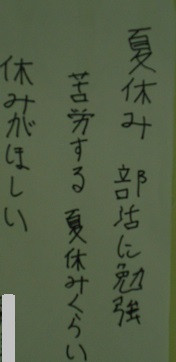 夏休み 部活に勉強
苦労する 夏休みくらい
休みがほしい